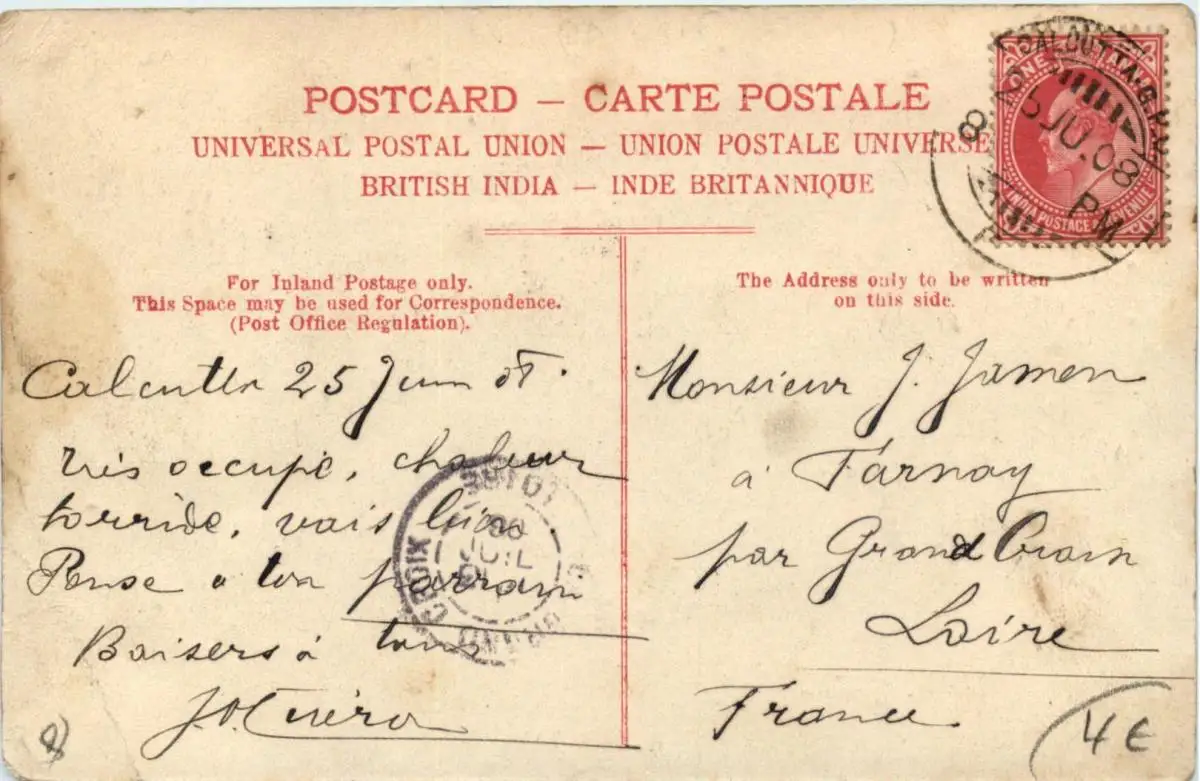 POSTCARD — CARTE POSTALE
UNIVERSAL POSTAL UNION — UNION POSTALE UNIVERSE
BRITISH INDIA — INDE BRITANNIQUE
CALCUTTA G.P.O.
25 JU.08
8 PM
ONE
INDIA POSTAGE & REVENUE
For Inland Postage only.
This Space may be used for Correspondence.
(Post Office Regulation).
The Address only to be written
on this side.
Calcutta 25 Juin 08.
très occupé, chaleur
torride, vais bien.
Pense à ton parrain
Baisers à tous
Monsieur J. Jamen
à Farnay
par Grand Croix
Loire
France
GRAND CROIX
LOIRE
JUIL
08
4 €